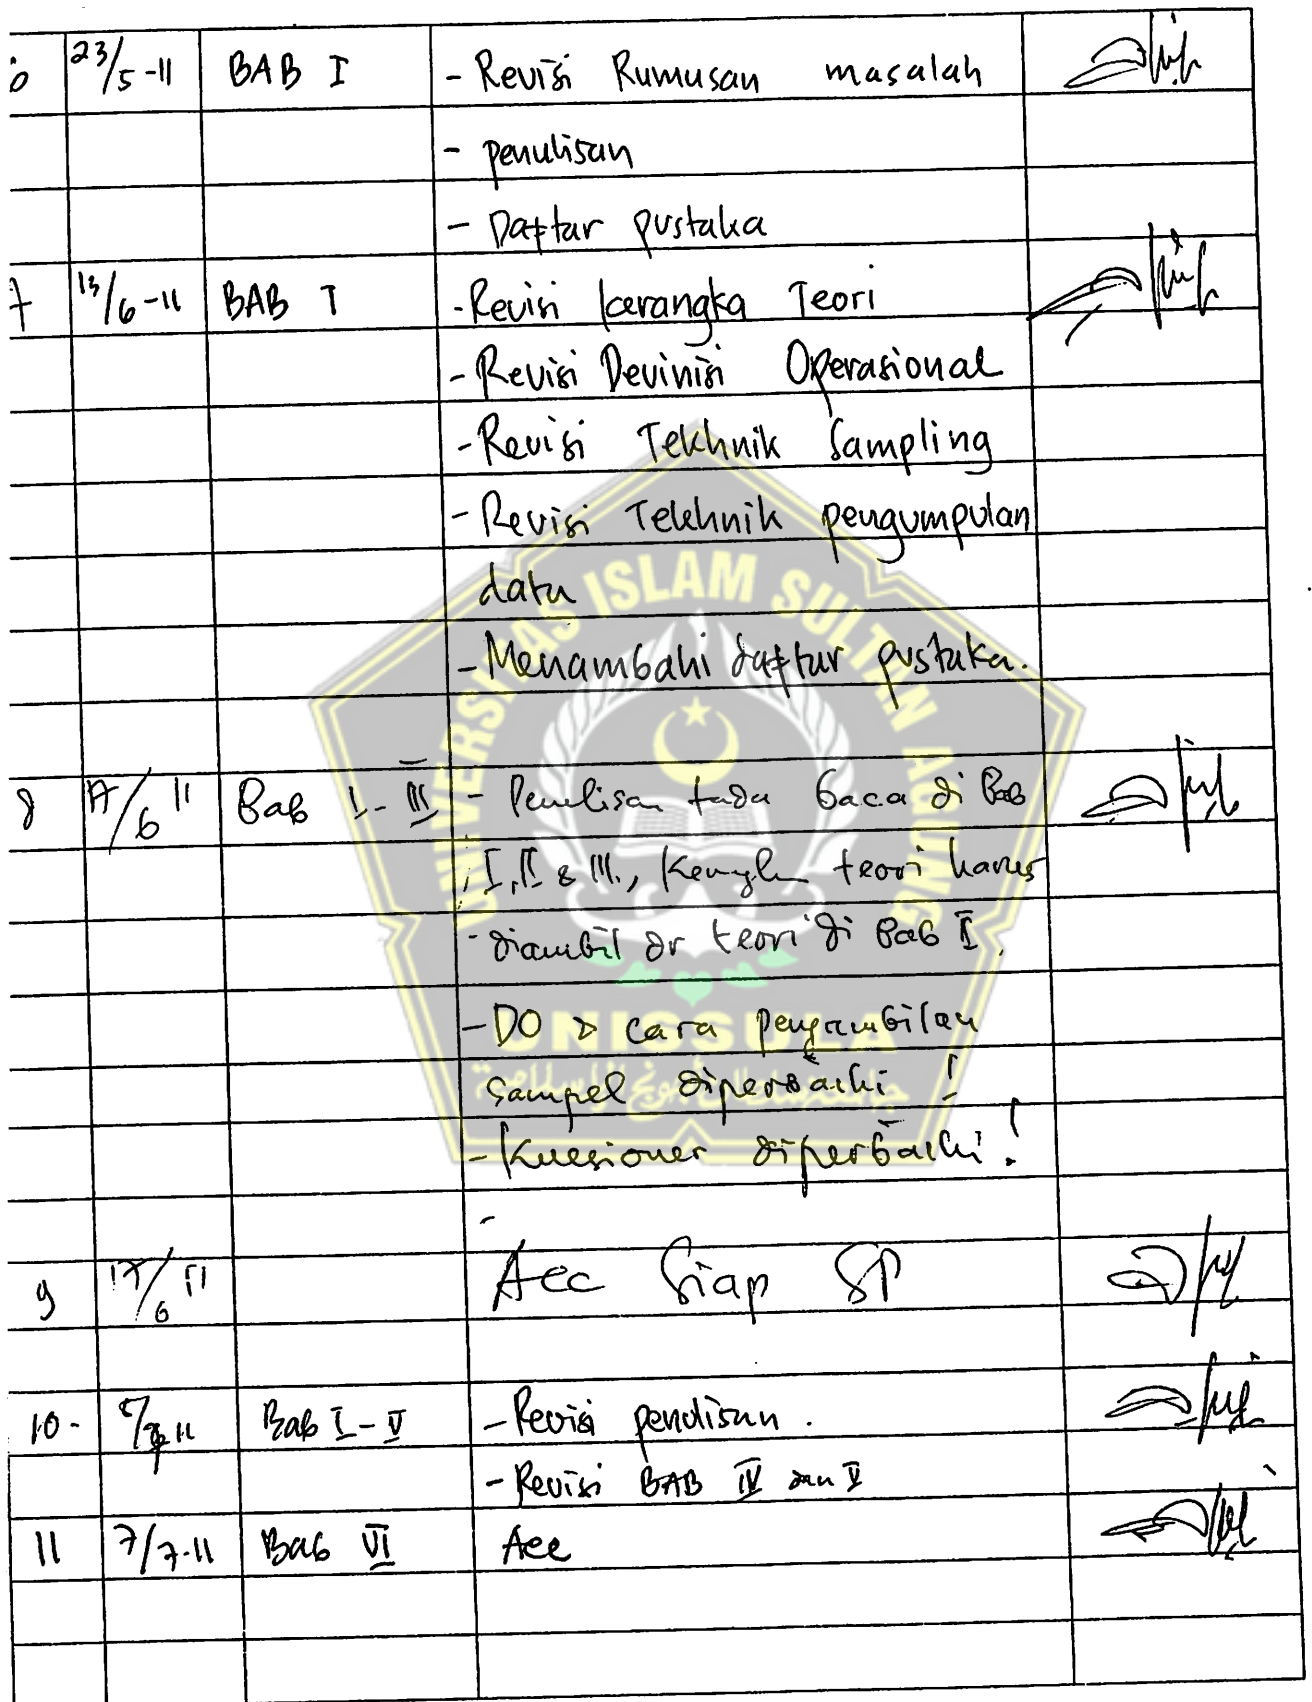 23/5-11 BAB I - Revisi Rumusan masalah
- penulisan
- Daftar pustaka
7 13/6-11 BAB I - Revisi kerangka Teori
- Revisi Devinisi Operasional
- Revisi Tekhnik Sampling
- Revisi Tekhnik pengumpulan
data
- Menambahi daftar pustaka.
8 17/6 11 Bab I - III - Penulisan tada baca di Bab
I, II & III, teori harus
- diambil dr teori di Bab II.
- DO cara pengambilan
sampel diperbaiki !
- Kuesioner diperbaiki !
-
9 17/6 11 Acc Siap SP
10- Bab I - V - Revisi penulisan.
- Revisi BAB IV dan V
11 7/7-11 Bab VI Acc
UNIVERSITAS ISLAM SULTAN AGUNG
UNISSULA